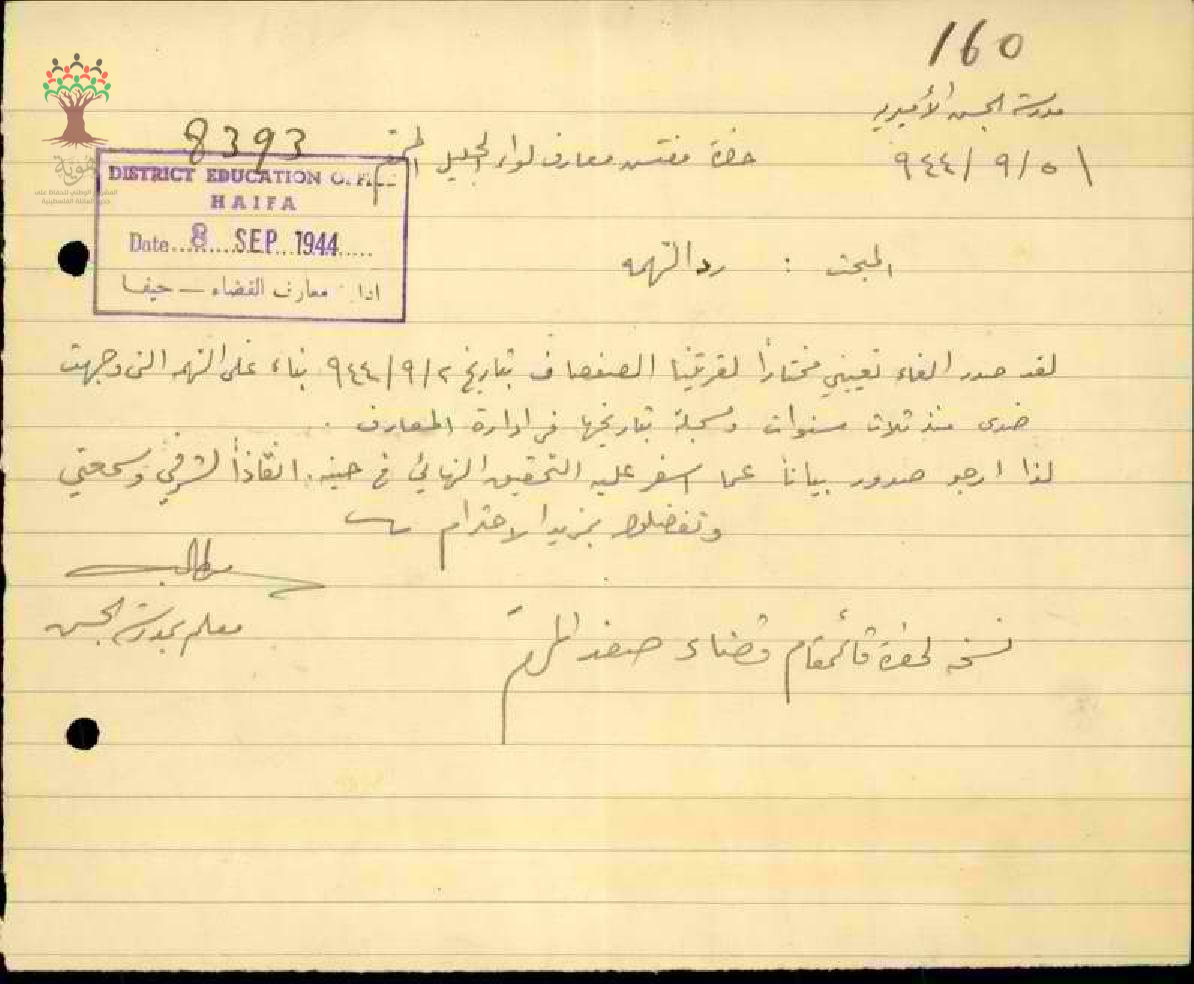 160
مدرسة الجش الأميرية
٩٤٤/٩/٥
حضرة مفتش معارف لواء الجليل المحترم
8393
DISTRICT EDUCATION OFFICE
HAIFA
Date 8 SEP 1944
معارف القضاء — حيفا
هوية
المبحث : رد التهمه
لقد صدر الغاء تعييني مختاراً لقريتنا الصفصاف بتاريخ ٩٤٤/٩/٢ بناء على التهم التي وجهت
ضدي منذ ثلاث سنوات ومسجلة بتاريخها في ادارة المعارف .
لذا ارجو صدور بياناً عما اسفر عليه التحقيق النهائي في حينه. انقاذاً لشرفي وسمعتي
وتفضلوا بمزيد الاحترام
معلم بمدرسة الجش
نسخه لحضرة قائمقام قضاء صفد المحترم